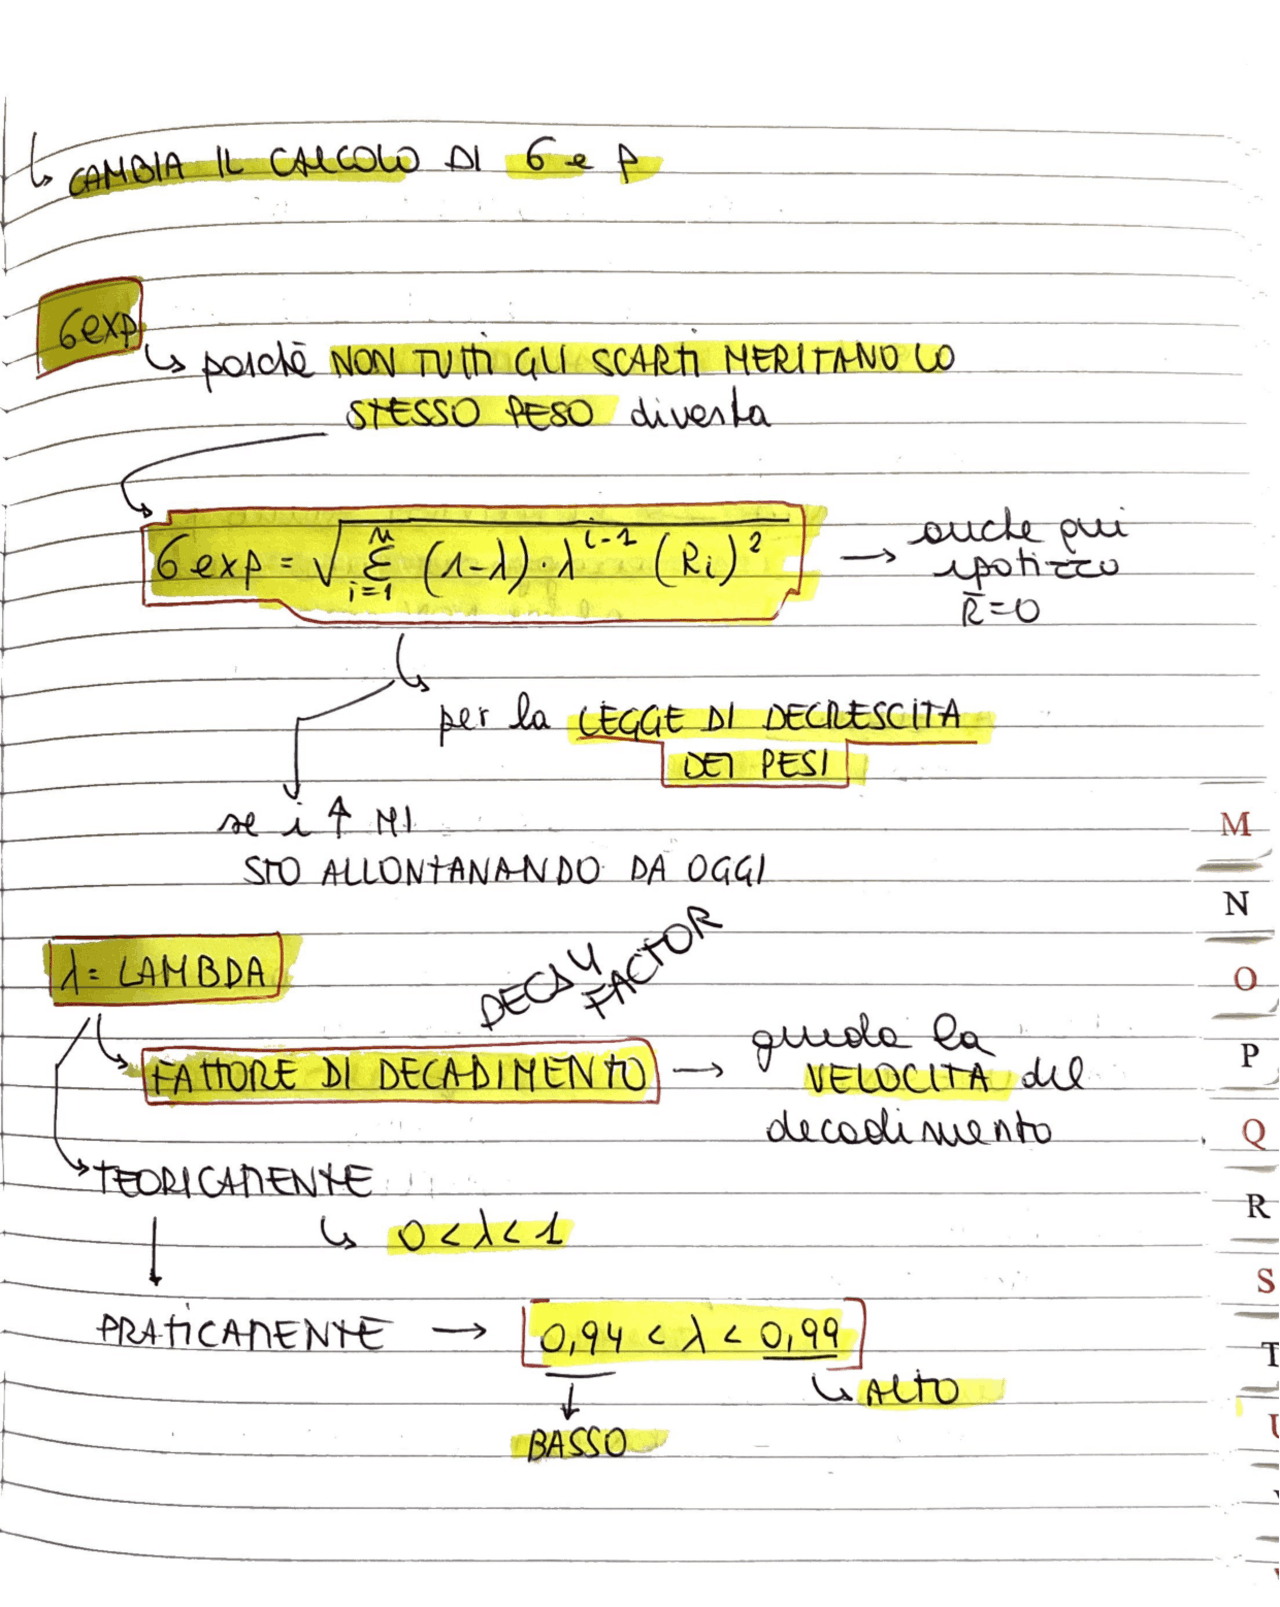 ↳ CAMBIA IL CALCOLO DI σ e ρ
σexp
↳ poiché NON TUTTI GLI SCARTI MERITANO LO
STESSO PESO diventa
σ exp = √ Σ (1-λ)·λ^(i-1) (Ri)^2 → anche qui
n
i=1
ipotizzo
R̅=0
per la LEGGE DI DECRESCITA
DEI PESI
se i ↑ MI
STO ALLONTANANDO DA OGGI
λ = LAMBDA
DECAY
FACTOR
FATTORE DI DECADIMENTO → guida la
VELOCITA del
decadimento
TEORICAMENTE
↳ 0 < λ < 1
PRATICAMENTE → 0,94 < λ < 0,99
↳ ALTO
↓
BASSO
M
N
O
P
Q
R
S
T
U